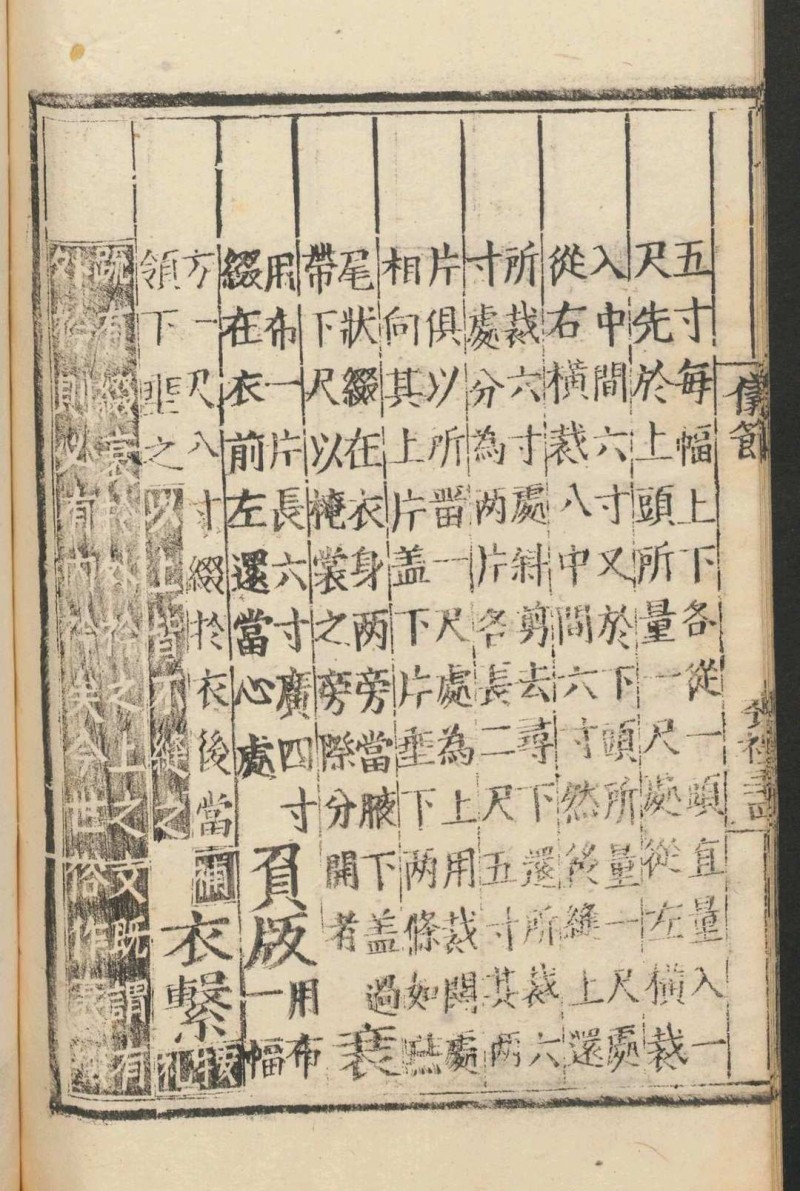 儀節
五寸每幅上下各從一頭直量入一
尺先於上頭所量一尺處從左橫裁
入中間六寸又於下頭所量一尺處
從右橫裁八中間六寸然後縫上還
所裁六寸處斜剪去尋下還所裁六
寸處分為两片各長二尺五寸其两
片俱以所畱一尺處為上用裁開處
相向其上片盖下片垂下两條如燕
尾狀綴在衣身两旁當腋下盖過
帶下尺以掩裳之旁際分開者
衰
用布一片長六寸廣四寸
綴在衣前左還當心處
負版
用布
一幅
方一尺八寸綴於衣後當
領下垂之以上皆不縫之
補
衣繫
按
礼
疏有綴衰於外衿之上之文既謂有
外衿則必有内衿矣今世俗作